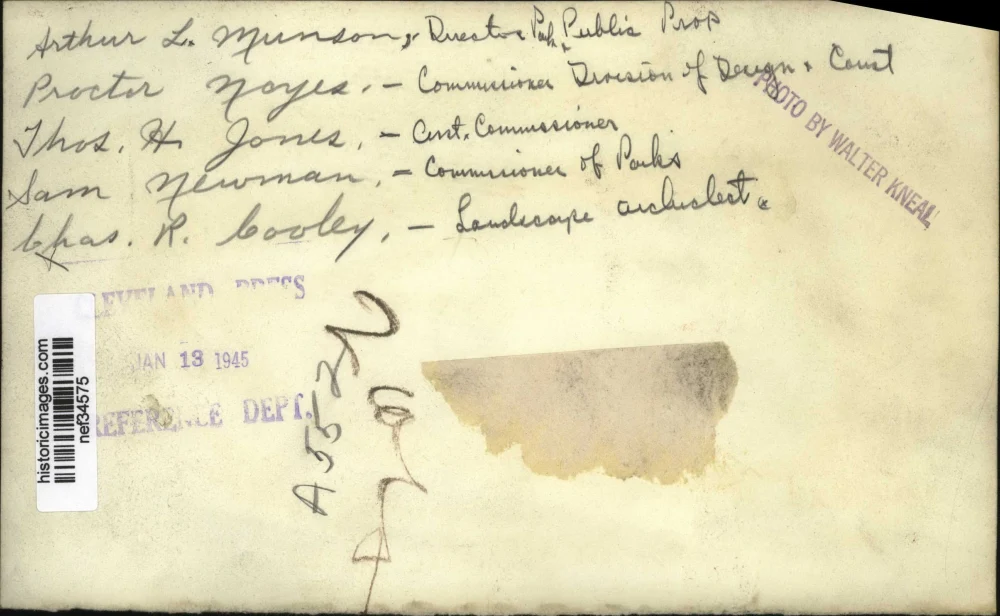 Arthur L. Munson, Director Pub Public Prop
Proctor Noyes, - Commissioner Division of Design & Const
Thos. H. Jones, - Asst. Commissioner
Sam Newman, - Commissioner of Parks
Chas. R. Cooley, - Landscape architect
PHOTO BY WALTER KNEAL
CLEVELAND PRESS
JAN 13 1945
REFERENCE DEPT.
historicimages.com
nef34575
A552